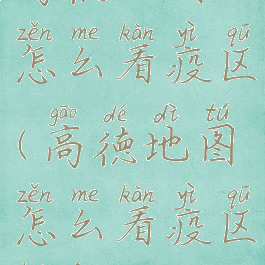 zěn me kàn yì qū
怎么看疫区
gāo dé dì tú
(高德地图
zěn me kàn yì qū
怎么看疫区